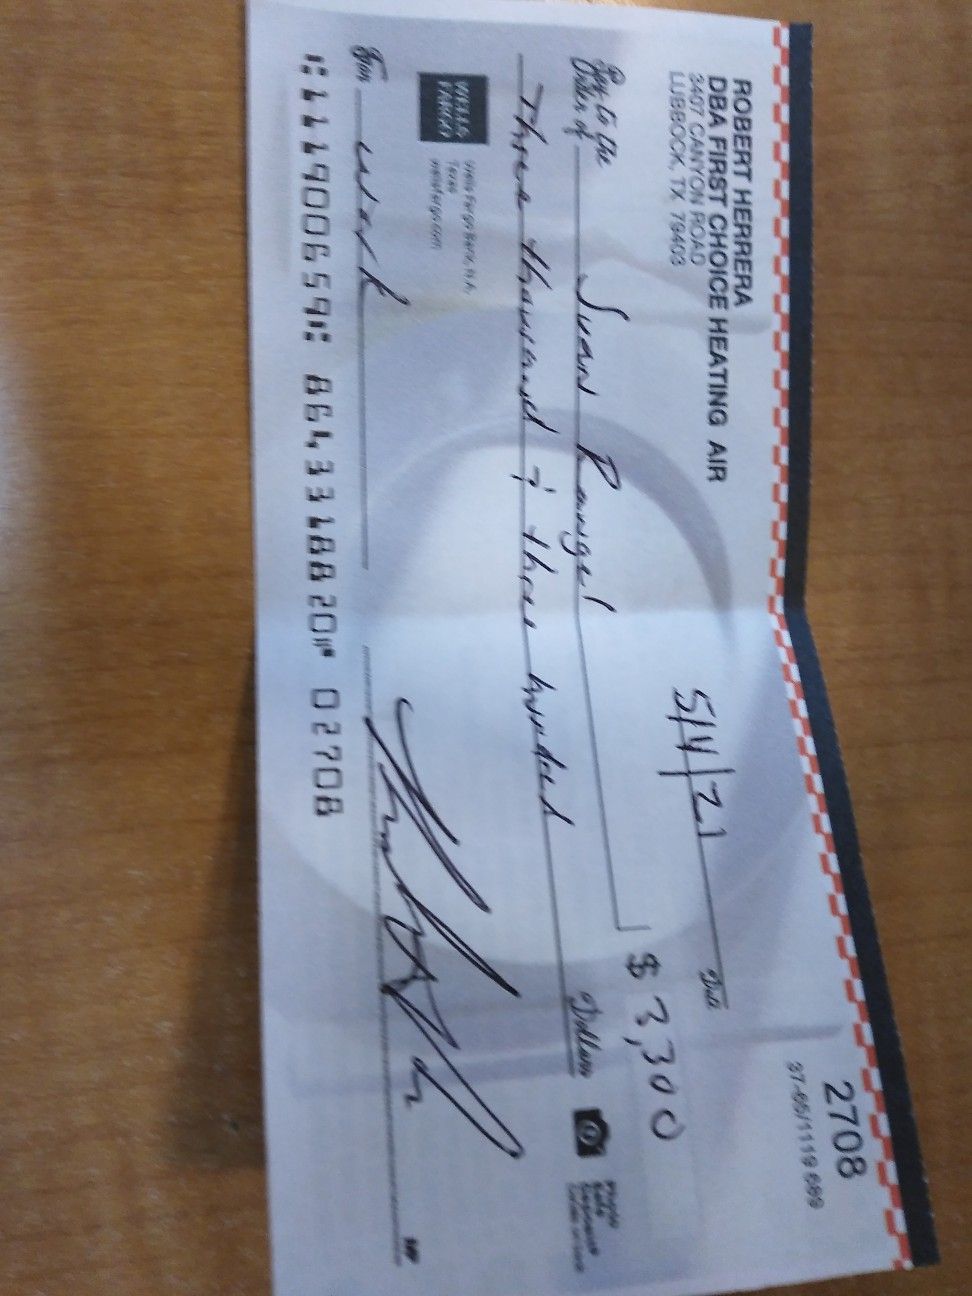 ROBERT HERRERA
DBA FIRST CHOICE HEATING AIR
3407 CANYON ROAD
LUBBOCK, TX 79403
2708
37-65/1119 689
5/4/21 Date
Pay to the Order of Suan Rangel $ 3,300
Three thousand & three hundred Dollars
Photo Safe Deposit®
WELLS FARGO
Wells Fargo Bank, N.A.
Texas
wellsfargo.com
For work
MP
⑆111900659⑆ 8643318820⑈ 02708